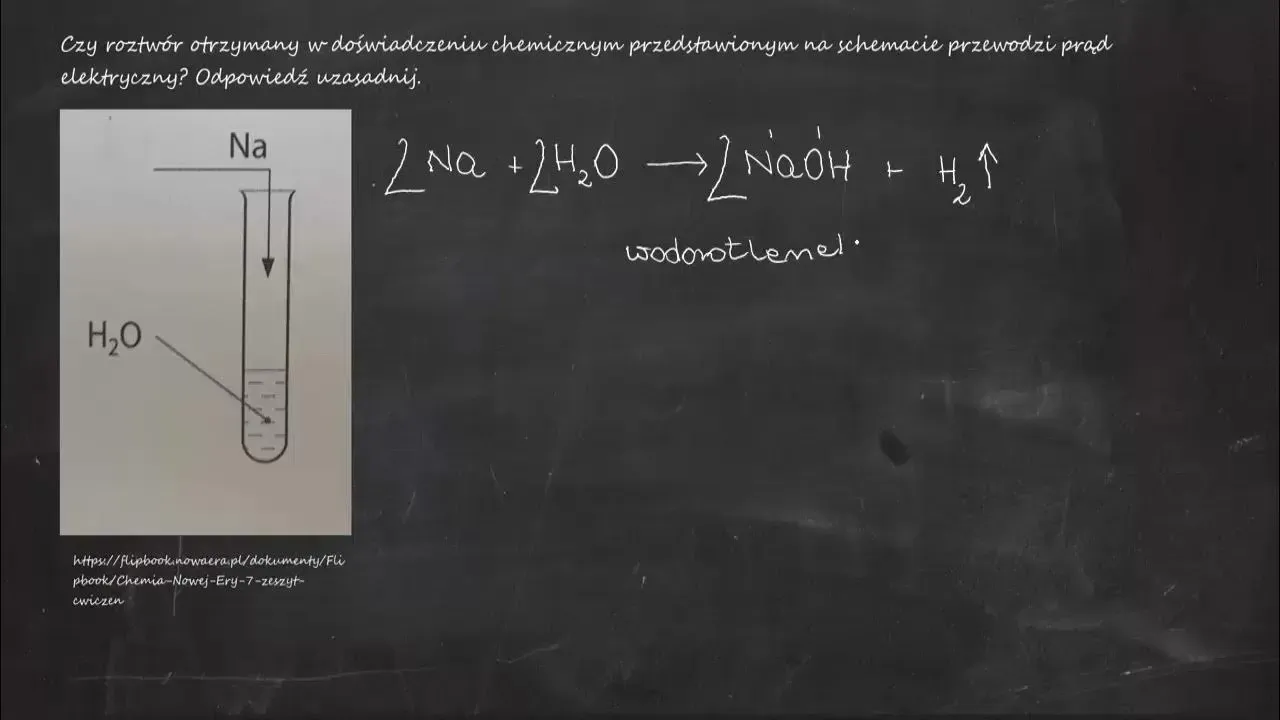 Czy roztwór otrzymany w doświadczeniu chemicznym przedstawionym na schemacie przewodzi prąd
elektryczny? Odpowiedź uzasadnij.
Na
2Na + 2H₂O → 2NaOH + H₂↑
wodorotlenel
H₂O
https://flipbook.nowaera.pl/dokumenty/Fli
pbook/Chemia-Nowej-Ery-7-zeszyt-
cwiczen